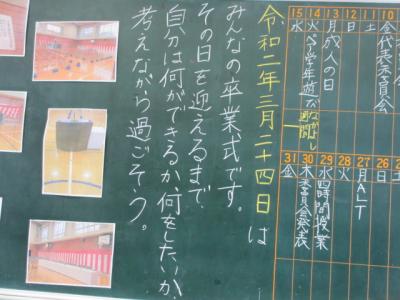 10 金 代表委員会
11 土
12 日
13 月 成人の日
14 火 ペア学年遊び なかよし週間
15 水
26 日
27 月 ALT
28 火
29 水 四時間授業
30 木 委員会発表
31 金
令和二年三月二十四日は
みんなの卒業式です。
その日を迎えるまで、
自分は何ができるか、何をしたいか、
考えながら過ごそう。